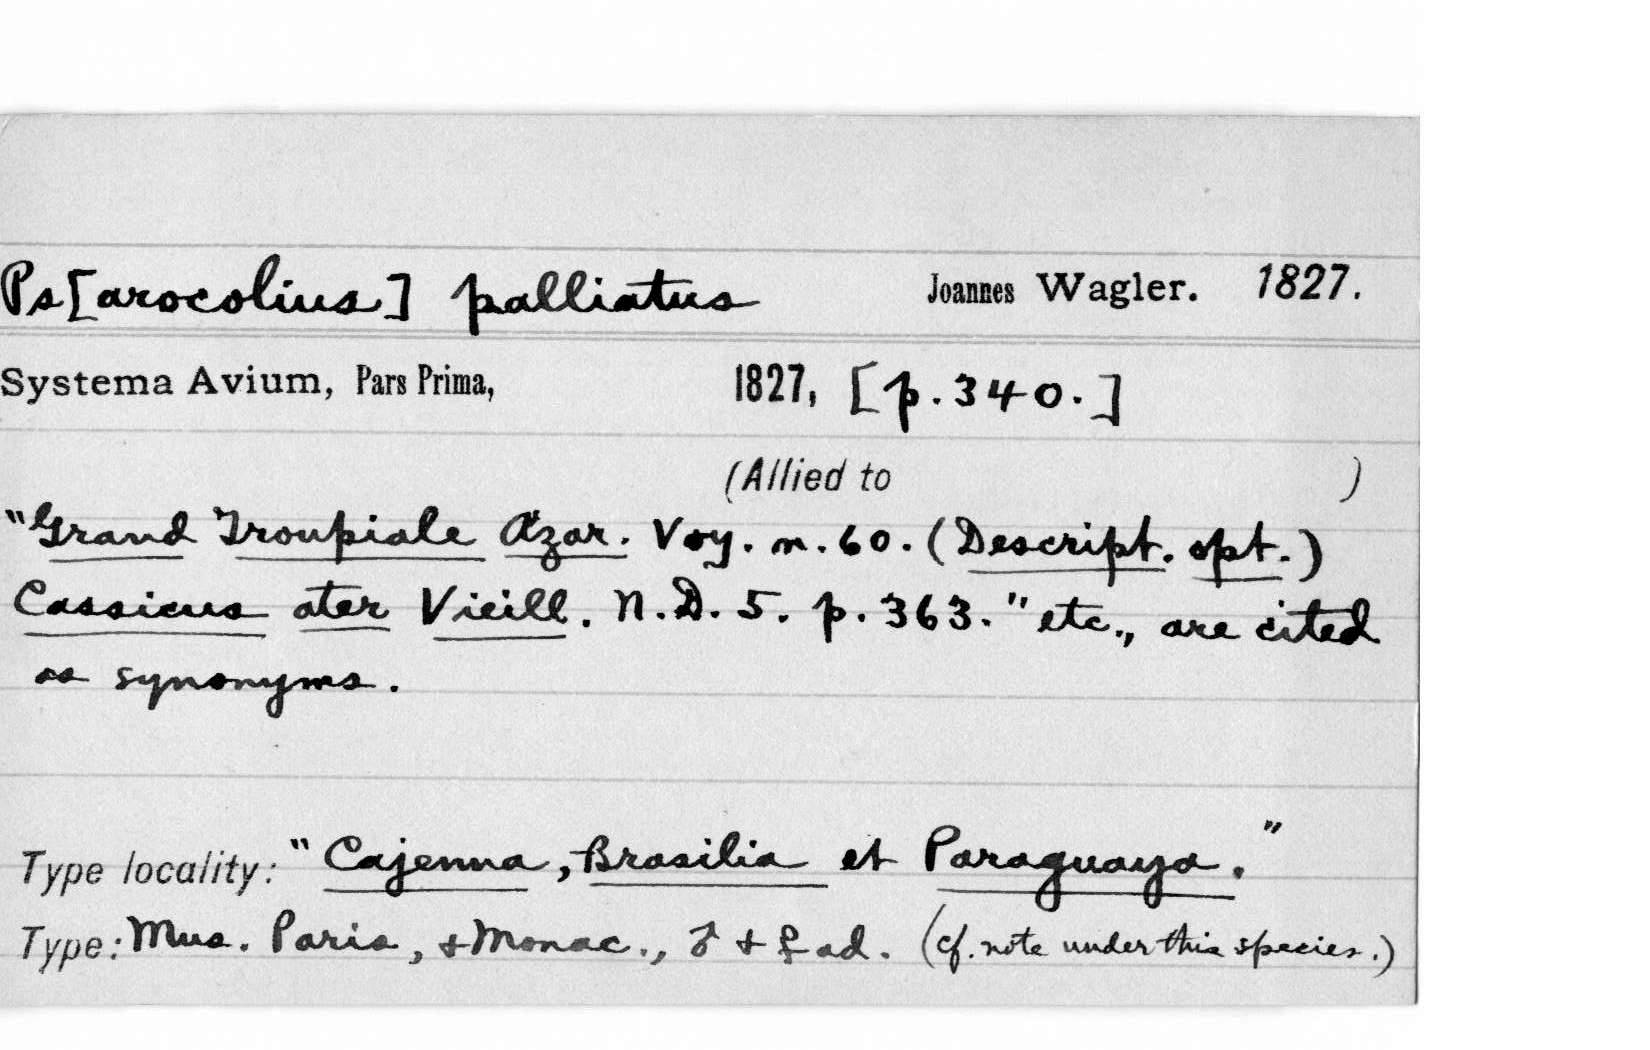 Ps[arocolius] palliatus Joannes Wagler. 1827.
Systema Avium, Pars Prima, 1827, [p. 340.]
(Allied to )
"Grand Troupiale Azar. Voy. n. 60. (Descript. opt.)
Cassicus ater Vieill. N. D. 5. p. 363." etc., are cited
as synonyms.
Type locality: "Cajenna, Brasilia et Paraguaya."
Type: Mus. Paris, & Monac., ♂ & ♀ ad. (cf. note under this species.)